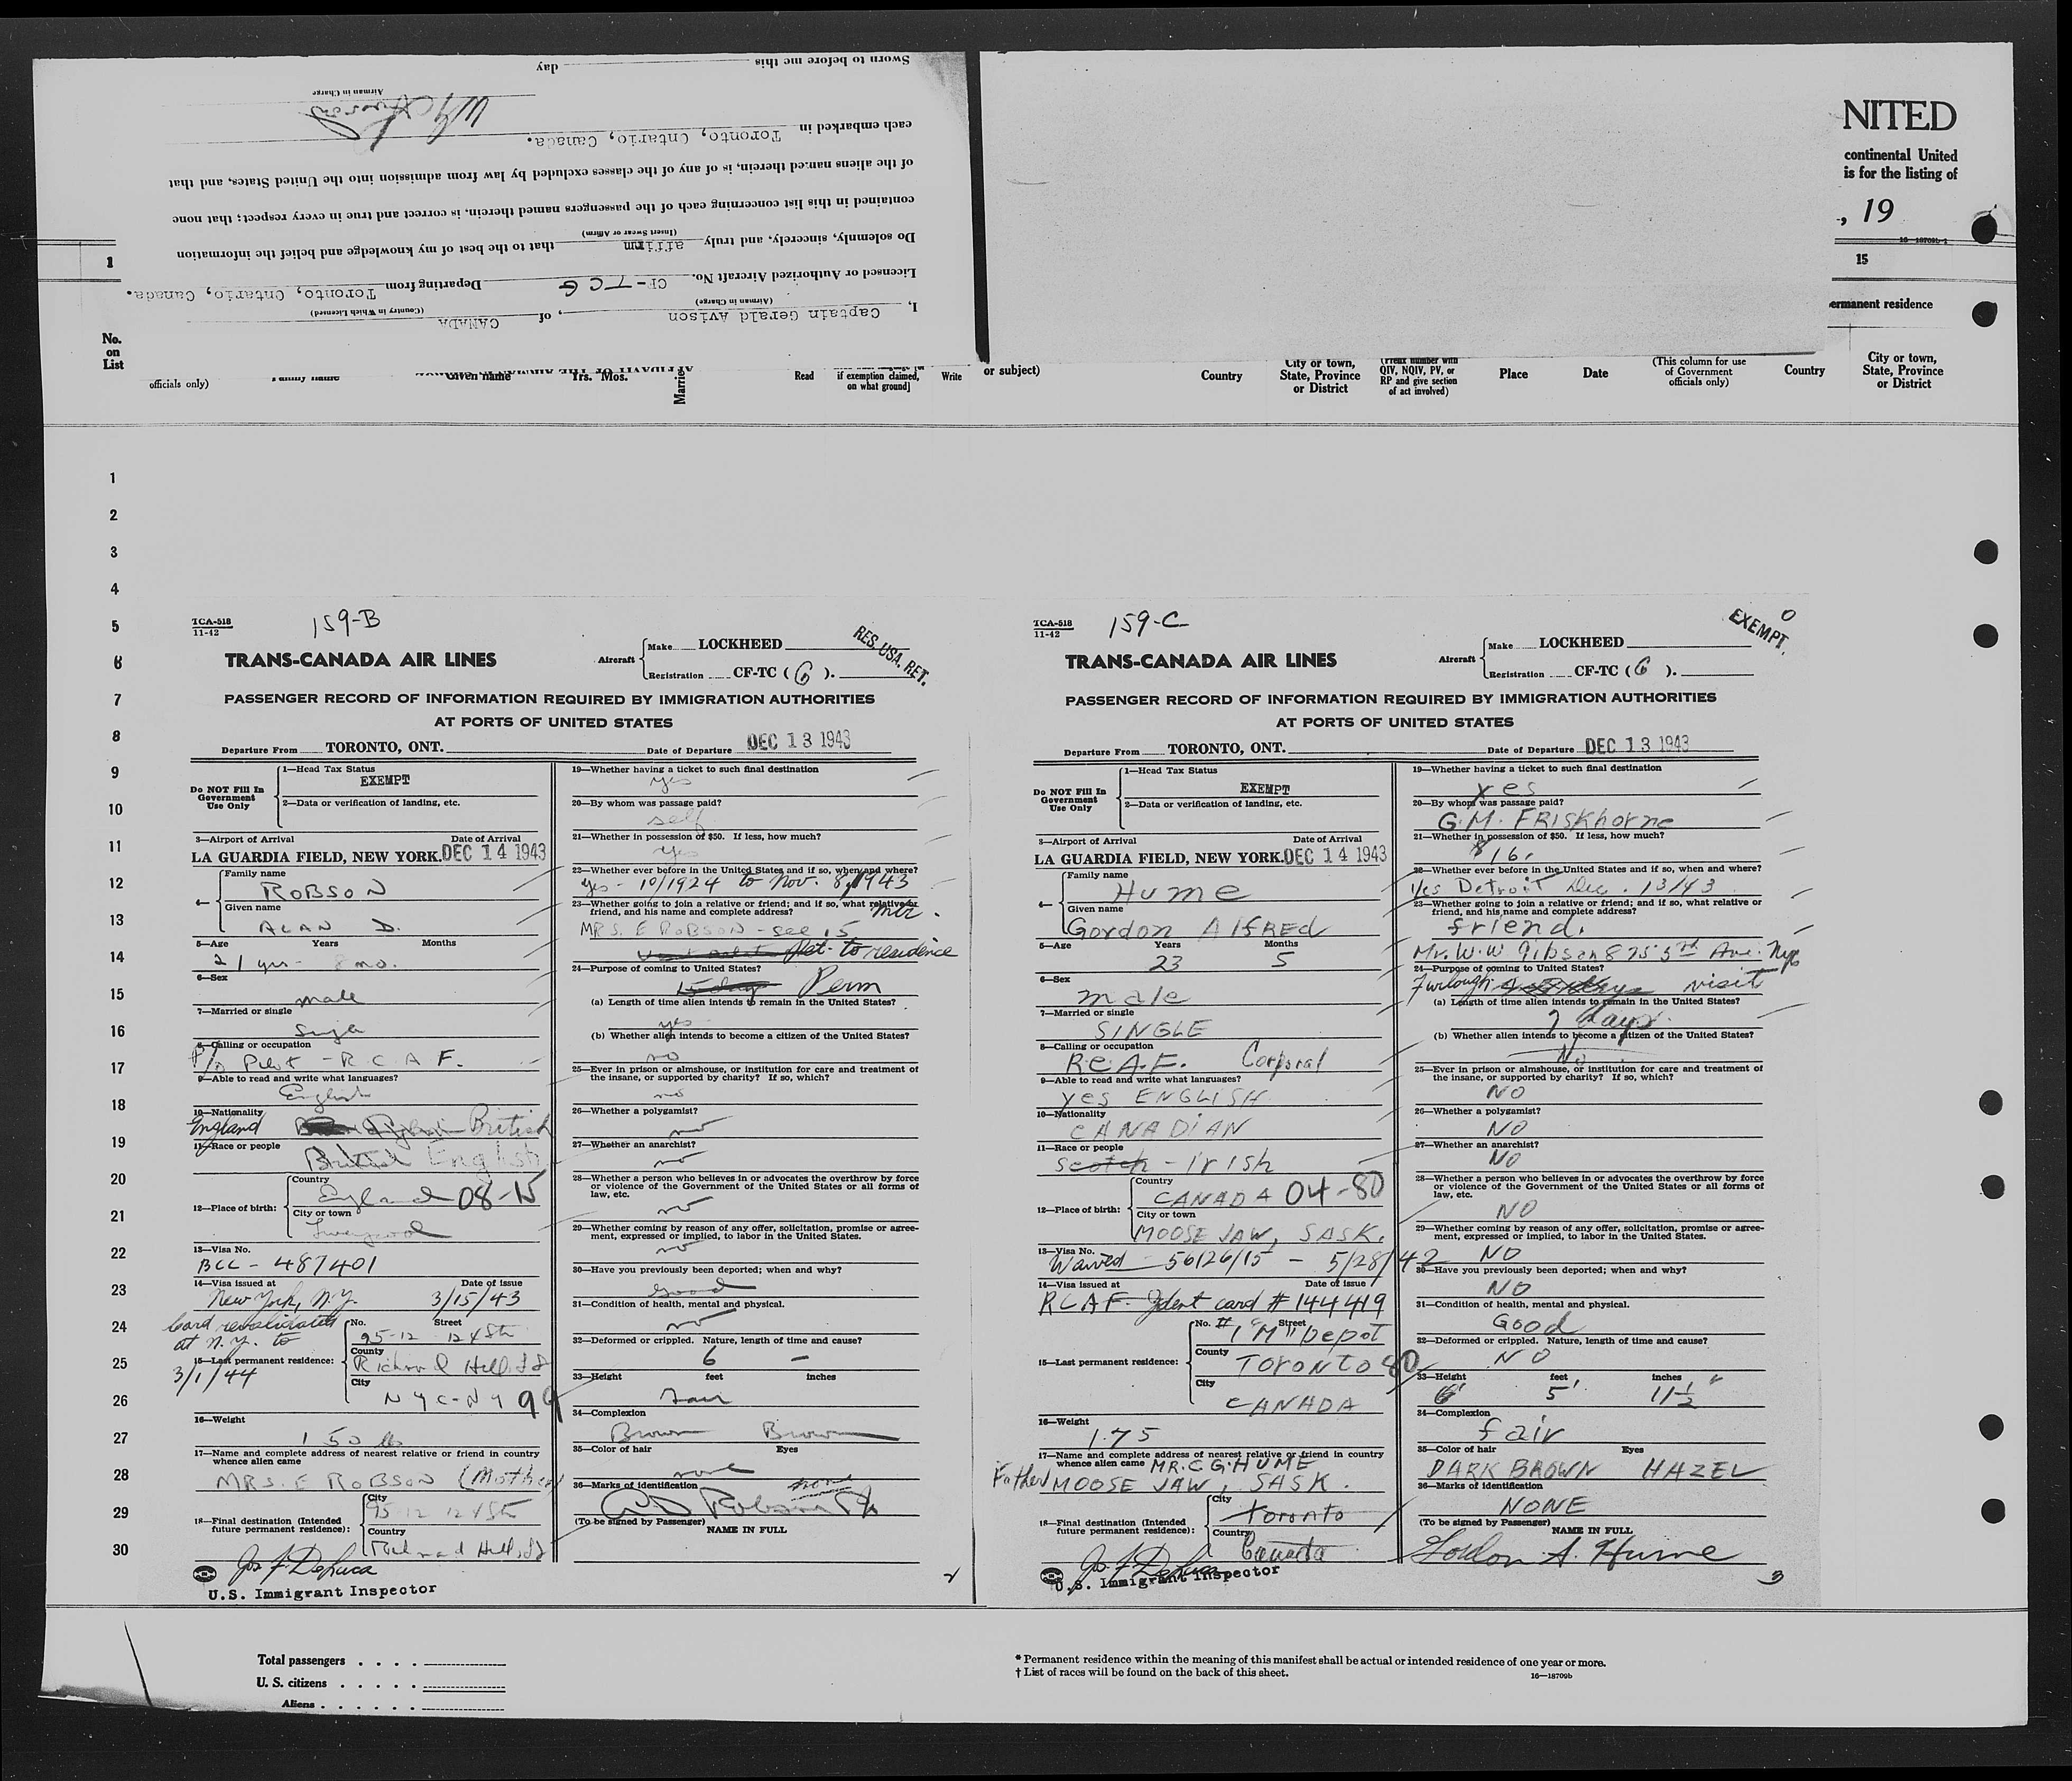 Sworn to before me this day
Airman in Charge
each embarked in Toronto, Ontario, Canada.
of the aliens named therein, is of any of the classes excluded by law from admission into the United States, and that
contained in this list concerning each of the passengers named therein, is correct and true in every respect; that none
(Insert Swear or Affirm)
Do solemnly, sincerely, and truly affirm that to the best of my knowledge and belief the information
Licensed or Authorized Aircraft No. CF-TCG Departing from Toronto, Ontario, Canada.
(Airman in Charge) (Country in Which Licensed)
I, Captain Gerald Avison, of CANADA
NITED
continental United
is for the listing of
, 19
16—18709b-1
1
15
ermanent residence
No.
on
List
officials only)
Family name
Given name
Yrs. Mos.
Married
Read
if exemption claimed,
on what ground]
Write
or subject)
Country
City or town,
State, Province
or District
(Prefix number with
QIV, NQIV, PV, or
RP and give section
of act involved)
Place
Date
(This column for use
of Government
officials only)
Country
City or town,
State, Province
or District
1
2
3
4
5
6
7
8
9
10
11
12
13
14
15
16
17
18
19
20
21
22
23
24
25
26
27
28
29
30
TCA-518
11-42
159-B
TRANS-CANADA AIR LINES
Aircraft
Make LOCKHEED
Registration CF-TC ( G ).
RES. USA. RET.
PASSENGER RECORD OF INFORMATION REQUIRED BY IMMIGRATION AUTHORITIES
AT PORTS OF UNITED STATES
Departure From TORONTO, ONT. Date of Departure DEC 13 1943
Do NOT Fill In
Government
Use Only
1—Head Tax Status
EXEMPT
2—Data or verification of landing, etc.
3—Airport of Arrival Date of Arrival
LA GUARDIA FIELD, NEW YORK. DEC 14 1943
4—
Family name
ROBSON
Given name
ALAN D.
5—Age Years Months
21 yrs- 8 mo.
6—Sex
male
7—Married or single
Single
8—Calling or occupation
P/O Pilot - R C A F.
9—Able to read and write what languages?
English
10—Nationality
England British
11—Race or people
British English
12—Place of birth:
Country
England 08-15
City or town
Liverpool
13—Visa No.
BCC - 487401
14—Visa issued at Date of issue
New York, N.Y. 3/15/43
Card revalidated
at N.Y. to
3/1/44
15—Last permanent residence:
No. Street
95-12 124 St
County
Richmond Hill
City
N Y C - N Y 99
16—Weight
150 lb
17—Name and complete address of nearest relative or friend in country
whence alien came
MRS. E ROBSON (Mother)
18—Final destination (Intended
future permanent residence):
City
95-12 124 St
Country
Richmond Hill
Jos F. DeLuca
U.S. Immigrant Inspector
19—Whether having a ticket to such final destination
yes
20—By whom was passage paid?
self
21—Whether in possession of $50. If less, how much?
Yes
22—Whether ever before in the United States and if so, when and where?
yes - 10/1924 to Nov. 8, 1943
23—Whether going to join a relative or friend; and if so, what relative or
friend, and his name and complete address?
MRS. E ROBSON - see 15
Ret. to residence
24—Purpose of coming to United States?
15 days Perm
(a) Length of time alien intends to remain in the United States?
yes
(b) Whether alien intends to become a citizen of the United States?
no
25—Ever in prison or almshouse, or institution for care and treatment of
the insane, or supported by charity? If so, which?
no
26—Whether a polygamist?
no
27—Whether an anarchist?
no
28—Whether a person who believes in or advocates the overthrow by force
or violence of the Government of the United States or all forms of
law, etc.
no
29—Whether coming by reason of any offer, solicitation, promise or agree-
ment, expressed or implied, to labor in the United States.
no
30—Have you previously been deported; when and why?
good
31—Condition of health, mental and physical.
no
32—Deformed or crippled. Nature, length of time and cause?
6 —
33—Height feet inches
Fair
34—Complexion
Brown Brown
35—Color of hair Eyes
none
36—Marks of identification none
(To be signed by Passenger) NAME IN FULL
2
TCA-518
11-42
159-C
TRANS-CANADA AIR LINES
Aircraft
Make LOCKHEED
Registration CF-TC ( G ).
0
EXEMPT.
PASSENGER RECORD OF INFORMATION REQUIRED BY IMMIGRATION AUTHORITIES
AT PORTS OF UNITED STATES
Departure From TORONTO, ONT. Date of Departure DEC 13 1943
Do NOT Fill In
Government
Use Only
1—Head Tax Status
EXEMPT
2—Data or verification of landing, etc.
3—Airport of Arrival Date of Arrival
LA GUARDIA FIELD, NEW YORK. DEC 14 1943
4—
Family name
Hume
Given name
Gordon Alfred
5—Age Years Months
23 5
6—Sex
male
7—Married or single
SINGLE
8—Calling or occupation
R.C.A.F. Corporal
9—Able to read and write what languages?
Yes ENGLISH
10—Nationality
CANADIAN
11—Race or people
Scotch - Irish
12—Place of birth:
Country
CANADA 04-80
City or town
MOOSE JAW, SASK.
13—Visa No.
Waived 56126/15 - 5/28/42
14—Visa issued at Date of issue
RCAF Ident card # 144419
15—Last permanent residence:
No. Street
#1 "M" Depot
County
Toronto 80
City
CANADA
16—Weight
175
17—Name and complete address of nearest relative or friend in country
whence alien came MR. C G. HUME
Father MOOSE JAW, SASK.
18—Final destination (Intended
future permanent residence):
City
Toronto
Country
Canada
Jos. F. DeLuca
U.S. Immigrant Inspector
19—Whether having a ticket to such final destination
Yes
20—By whom was passage paid?
G.M. FRISKhorne
21—Whether in possession of $50. If less, how much?
$16.
22—Whether ever before in the United States and if so, when and where?
Yes Detroit Dec. 13/43
23—Whether going to join a relative or friend; and if so, what relative or
friend, and his name and complete address?
friend.
Mr. W. W Gibson 875 5th Ave. Nyc
24—Purpose of coming to United States?
Furlough visit
(a) Length of time alien intends to remain in the United States?
7 days.
(b) Whether alien intends to become a citizen of the United States?
No.
25—Ever in prison or almshouse, or institution for care and treatment of
the insane, or supported by charity? If so, which?
NO
26—Whether a polygamist?
NO
27—Whether an anarchist?
NO
28—Whether a person who believes in or advocates the overthrow by force
or violence of the Government of the United States or all forms of
law, etc.
NO
29—Whether coming by reason of any offer, solicitation, promise or agree-
ment, expressed or implied, to labor in the United States.
NO
30—Have you previously been deported; when and why?
NO
31—Condition of health, mental and physical.
Good
32—Deformed or crippled. Nature, length of time and cause?
NO
33—Height feet inches
5' 11 1/2"
34—Complexion
fair
35—Color of hair Eyes
DARK BROWN HAZEL
36—Marks of identification
NONE
(To be signed by Passenger) NAME IN FULL
Gordon A. Hume
3
Total passengers . . . .
U. S. citizens . . . . .
Aliens . . . . . .
* Permanent residence within the meaning of this manifest shall be actual or intended residence of one year or more.
† List of races will be found on the back of this sheet.
16—18709b